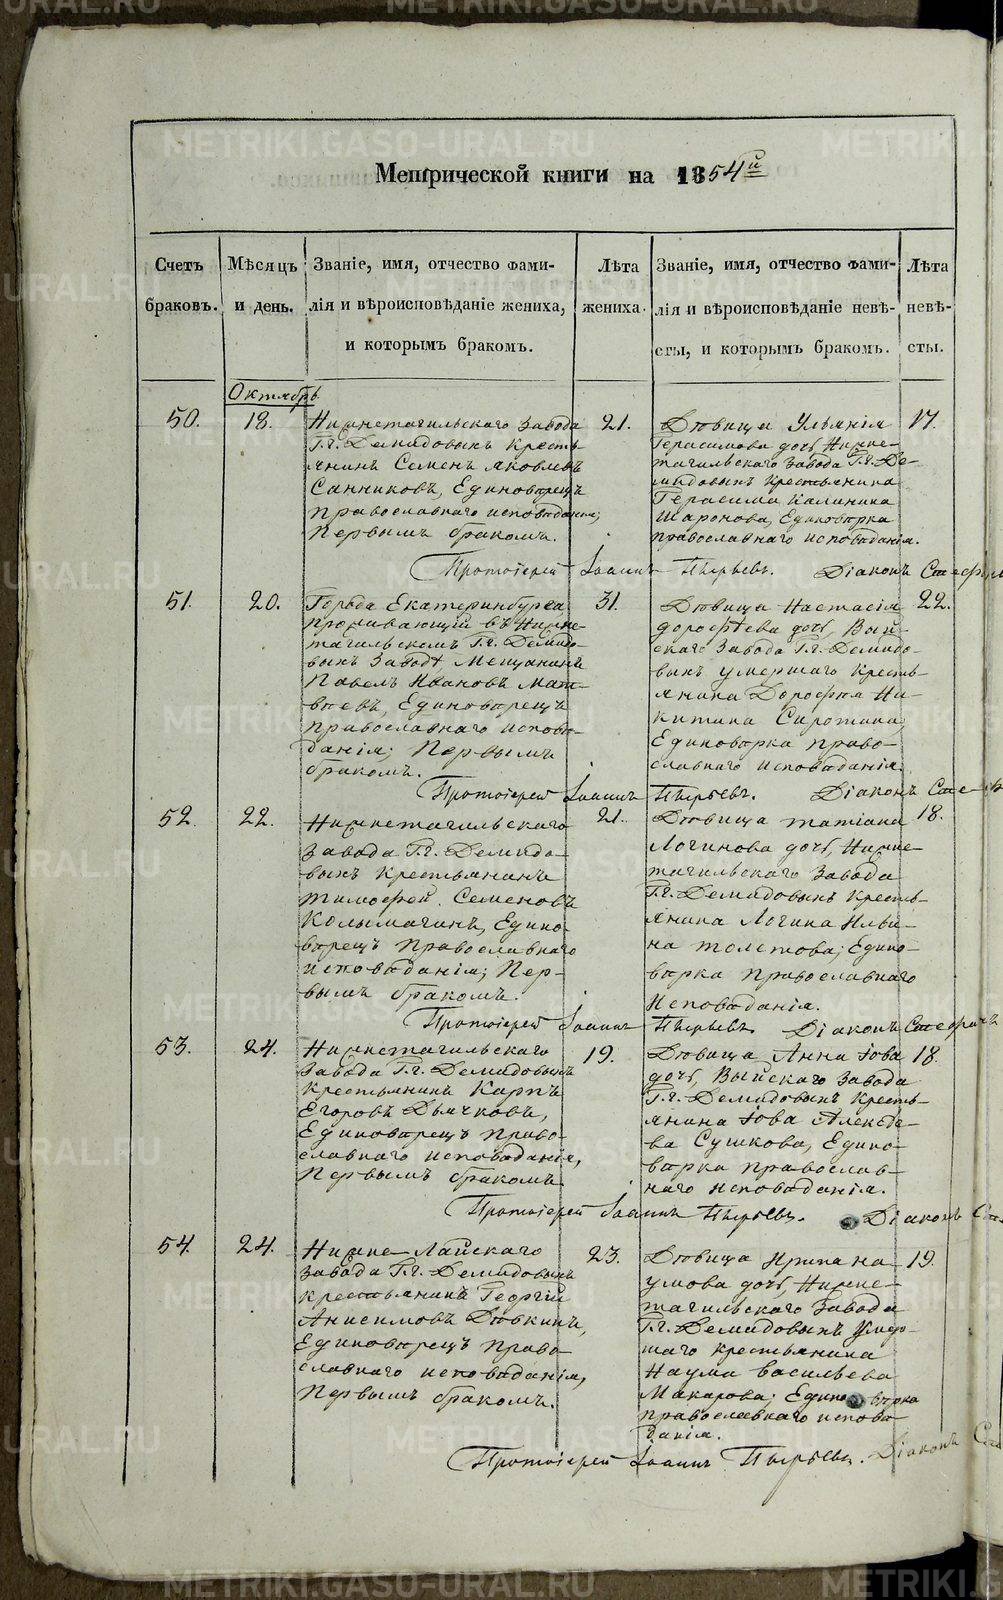 Метрической книги на 1854й
Счетъ браковъ.
Мѣсяцъ и день.
Званіе, имя, отчество фами-
лія и вѣроисповѣданіе жениха,
и которымъ бракомъ.
Лѣта жениха.
Званіе, имя, отчество фами-
лія и вѣроисповѣданіе невѣ-
сты, и которымъ бракомъ.
Лѣта невѣ-
сты.
Октябрь
50.
18.
Нижнетагильскаго Завода
Г.г. Демидовыхъ Кресть-
янинъ Семенъ Яковлевъ
Санниковъ, Единоверецъ
православнаго исповеданія;
Первымъ бракомъ.
21.
Девица Ульянія
Герасимова дочь, Нижне-
тагильскаго завода Г.г. Де-
мидовыхъ Крестьянина
Герасима Калинина
Шаронова, Единоверка
православнаго исповеданія.
17.
Протоіерей Іоаннъ Пырьевъ. Діаконъ
51.
20.
Города Екатеринбурга
проживающій въ Нижне-
тагильскомъ Г.г. Демидо-
выхъ Заводѣ, Мещанинъ
Павелъ Ивановъ Мат-
веевъ, Единоверецъ
православнаго испове-
данія; Первымъ
бракомъ.
31.
Девица Настасія
Дорофѣева дочь, Вый-
скаго Завода Г.г. Демидо-
выхъ умершаго Кресть-
янина Дорофея Ни-
китина Сиротина,
Единоверка право-
славнаго исповеданія.
22.
Протоіерей Іоаннъ Пырьевъ. Діаконъ
52.
22.
Нижнетагильскаго
Завода Г.г. Демидо-
выхъ крестьянинъ
Тимофей Семеновъ
Колымагинъ, Едино-
верецъ православнаго
исповеданія; Пер-
вымъ бракомъ.
21.
Девица Татіана
Логинова дочь, Нижне-
тагильскаго Завода
Г.г. Демидовыхъ Кресть-
янина Логина Ильи-
на Толстова; Едино-
верка православнаго
исповеданія.
18.
Протоіерей Іоаннъ Пырьевъ. Діаконъ
53.
24.
Нижнетагильскаго
Завода Г.г. Демидовыхъ
Крестьянинъ Карпъ
Егоровъ Дьячковъ,
Единоверецъ право-
славнаго исповеданія,
Первымъ бракомъ.
19.
Девица Анна Іова
дочь, Выйскаго Завода
Г.г. Демидовыхъ Кресть-
янина Іова Алексее-
ва Сушкова, Едино-
верка православ-
наго исповеданія.
18.
Протоіерей Іоаннъ Пырьевъ. Діаконъ
54.
24.
Нижне-Лайскаго
Завода Г.г. Демидовыхъ
крестьянинъ Георгій
Анисимовъ Девкинъ,
Единоверецъ право-
славнаго исповеданія,
Первымъ бракомъ.
23.
Девица Ирина На-
умова дочь, Нижне-
тагильскаго Завода
Г.г. Демидовыхъ Умер-
шаго крестьянина
Наума Васильева
Макарова; Единоверка
православнаго испове-
данія.
19.
Протоіерей Іоаннъ Пырьевъ. Діаконъ
METRIKI.GASO-URAL.RU